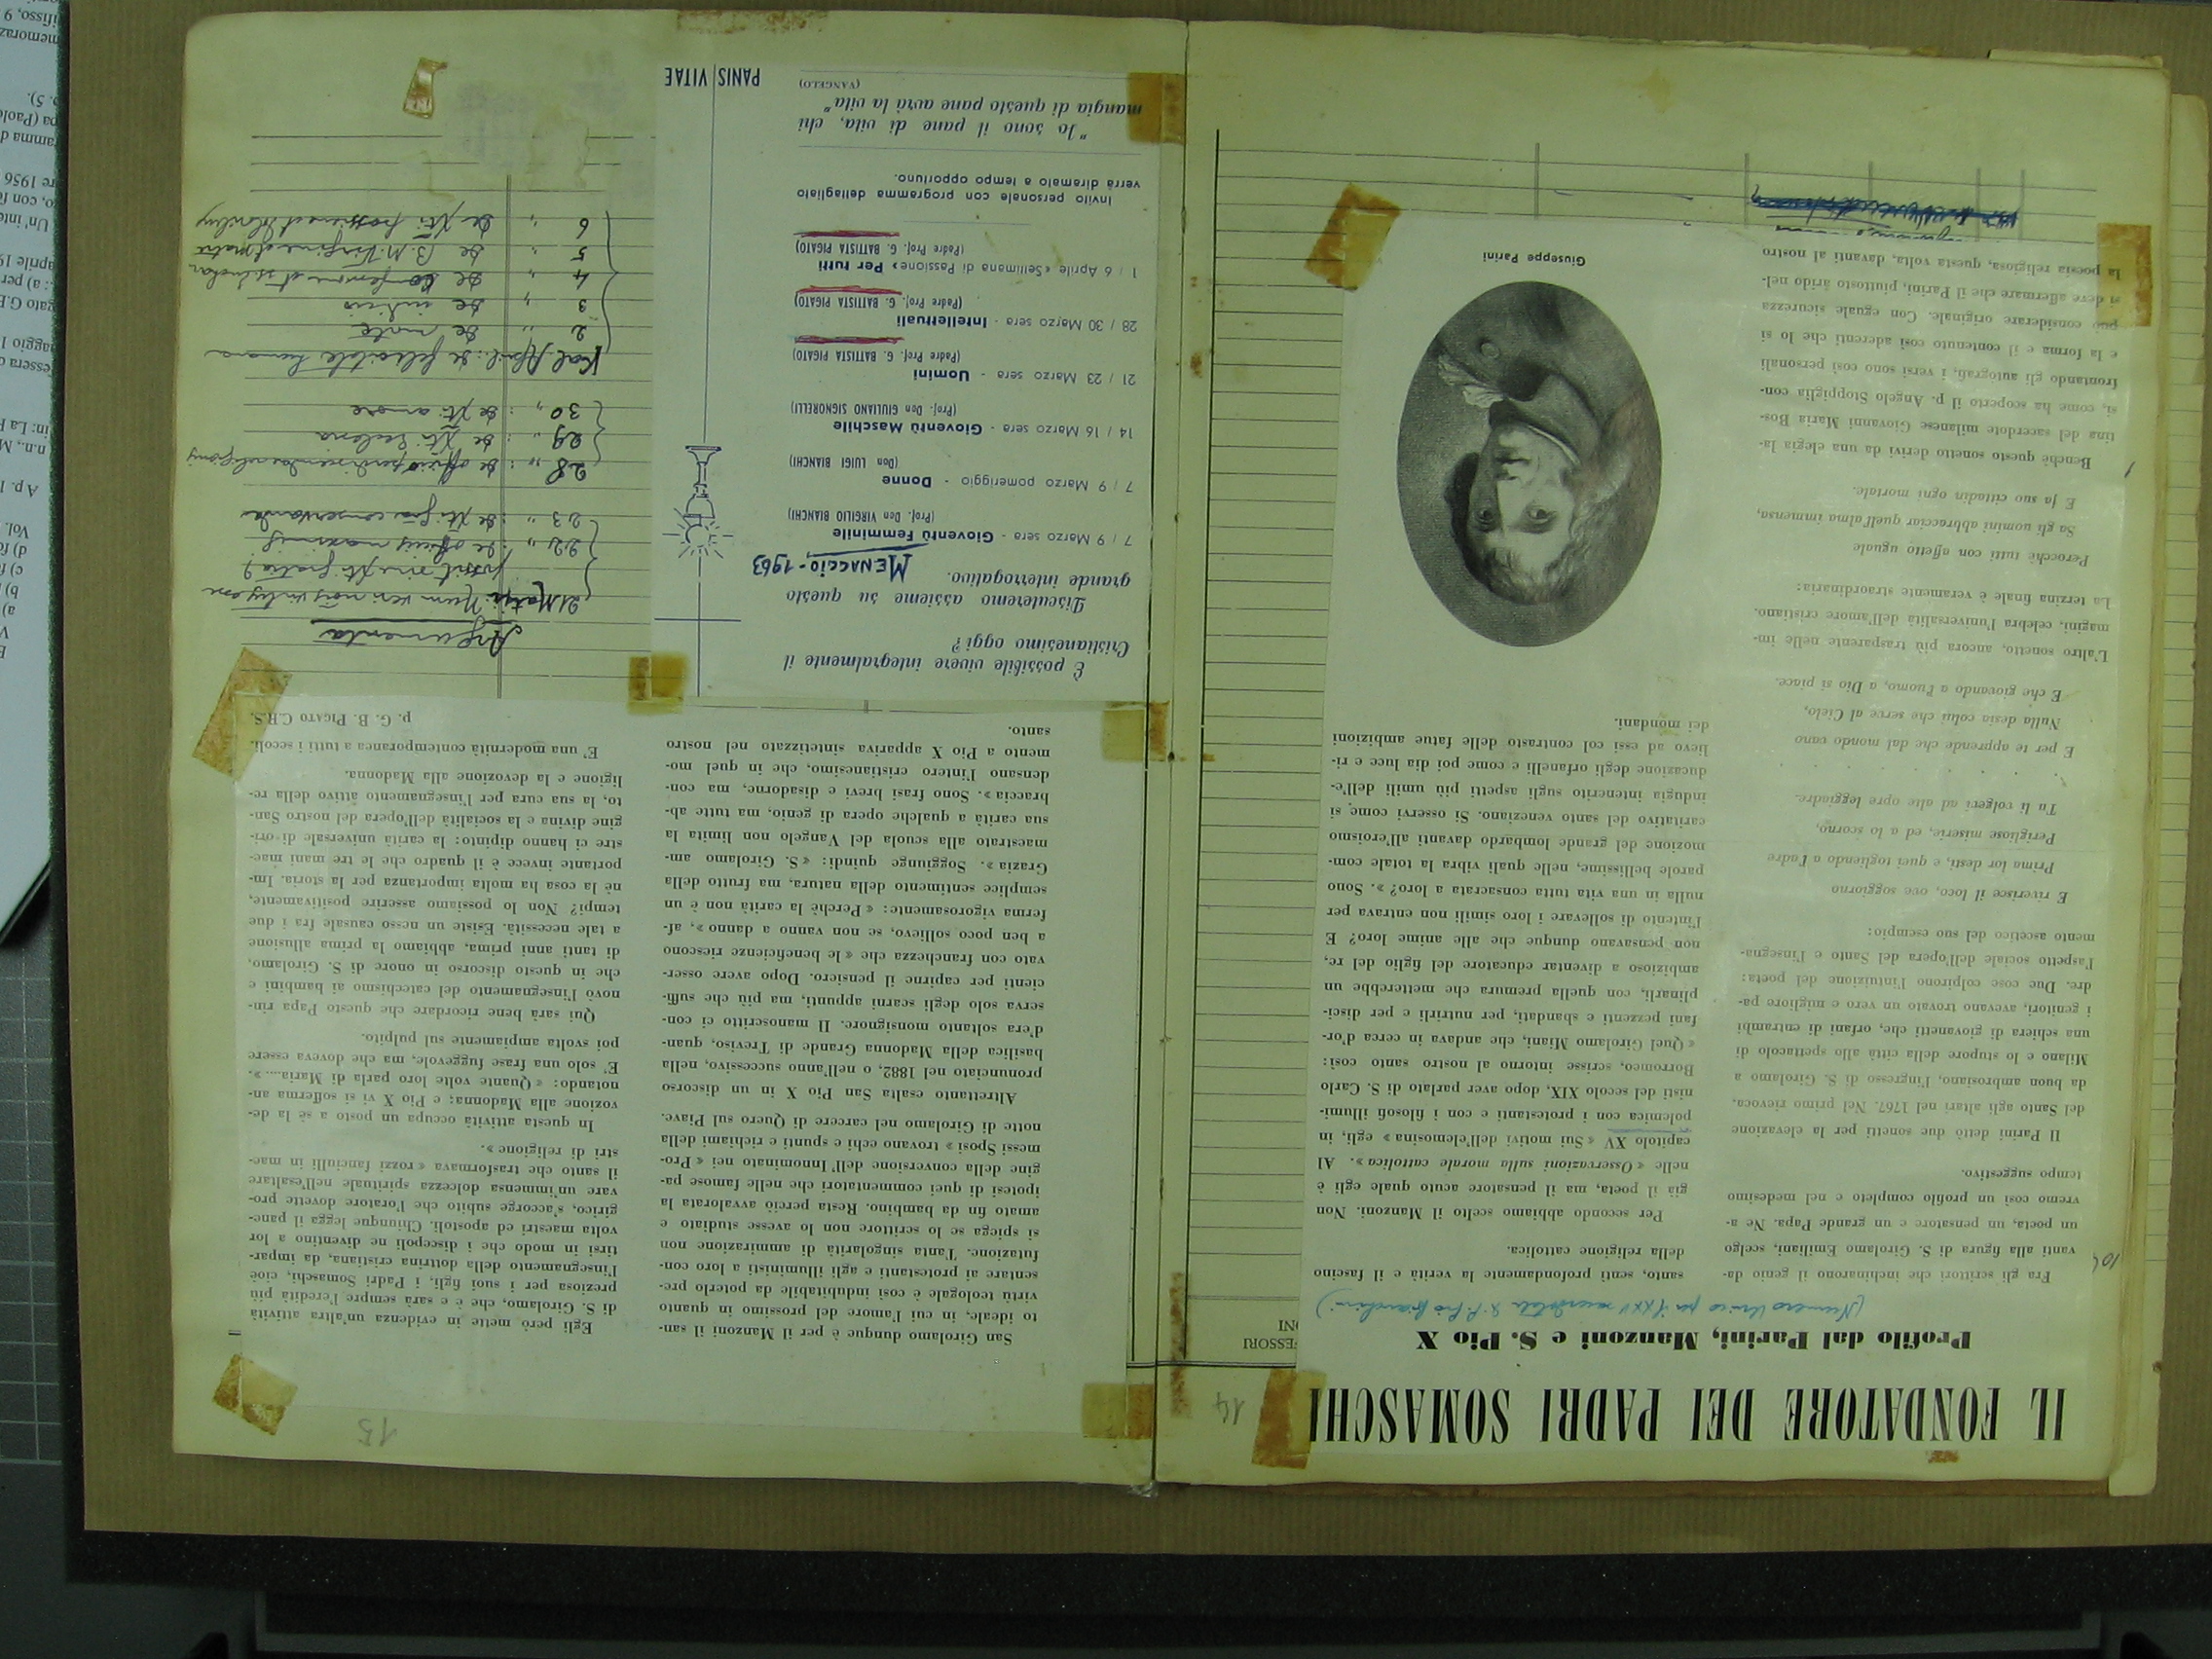 14
IL FONDATORE DEI PADRI SOMASCHI
Profilo dal Parini, Manzoni e S. Pio X
Fra gli scrittori che inchinarono il genio da-
vanti alla figura di S. Girolamo Emiliani, scelgo
un poeta, un pensatore e un grande Papa. Ne a-
vremo così un profilo completo e nel medesimo
tempo suggestivo.
Il Parini dettò due sonetti per la elevazione
del Santo agli altari nel 1767. Nel primo rievoca,
da buon ambrosiano, l'ingresso di S. Girolamo a
Milano e lo stupore della città allo spettacolo di
una schiera di giovanetti che, orfani di entrambi
i genitori, avevano trovato un vero e migliore pa-
dre. Due cose colpirono l'intuizione del poeta:
l'aspetto sociale dell'opera del Santo e l'insegna-
mento ascetico del suo esempio:
E riverisce il loco, ove soggiorno
Prima lor desti, e quei togliendo a l'adre
Perigliose miserie, ed a lo scorno,
Tu li volgeri ad alte opre leggiadre.
. . . . .
E per te apprende che dal mondo vano
Nulla desia colui che serve al Cielo,
E che giovando a l'uomo, a Dio si piace.
L'altro sonetto, ancora più trasparente nelle im-
magini, celebra l'universalità dell'amore cristiano.
La terzina finale è veramente straordinaria:
Perocchè tutti con affetto uguale
Sa gli uomini abbracciar quell'alma immensa,
E fa suo cittadin ogni mortale.
Benchè questo sonetto derivi da una elegia la-
tina del sacerdote milanese Giovanni Maria Bos-
si, come ha scoperto il p. Angelo Stoppiglia con-
frontando gli autografi, i versi sono così personali
e la forma e il contenuto così aderenti che lo si
può considerare originale. Con eguale sicurezza
si deve affermare che il Parini, piuttosto àrido nel-
la poesia religiosa, questa volta, davanti al nostro
santo, sentì profondamente la verità e il fascino
della religione cattolica.
Per secondo abbiamo scelto il Manzoni. Non
già il poeta, ma il pensatore acuto quale egli è
nelle « Osservazioni sulla morale cattolica ». Al
capitolo XV « Sui motivi dell'elemosina » egli, in
polemica con i protestanti e con i filosofi illumi-
nisti del secolo XIX, dopo aver parlato di S. Carlo
Borromeo, scrisse intorno al nostro santo così:
« Quel Girolamo Miani, che andava in cerca d'or-
fani pezzenti e sbandati, per nutrirli e per disci-
plinarli, con quella premura che metterebbe un
ambizioso a diventar educatore del figlio del re,
non pensavano dunque che alle anime loro? E
l'intento di sollevare i loro simili non entrava per
nulla in una vita tutta consacrata a loro? ». Sono
parole bellissime, nelle quali vibra la totale com-
mozione del grande lombardo davanti all'eroismo
caritativo del santo veneziano. Si osservi come si
indugia intenerito sugli aspetti più umili dell'e-
ducazione degli orfanelli e come poi dia luce e ri-
lievo ad essi col contrasto delle fatue ambizioni
dei mondani.
Giuseppe Parini
FESSORI
15
San Girolamo dunque è per il Manzoni il san-
to ideale, in cui l'amore del prossimo in quanto
virtù teologale è così indubitabile da poterlo pre-
sentare ai protestanti e agli illuministi a loro con-
futazione. Tanta singolarità di ammirazione non
si spiega se lo scrittore non lo avesse studiato e
amato fin da bambino. Resta perciò avvalorata la
ipotesi di quei commentatori che nelle famose pa-
gine della conversione dell'Innominato nei « Pro-
messi Sposi » trovano echi e spunti e richiami della
notte di Girolamo nel carcere di Quero sul Piave.
Altrettanto esalta San Pio X in un discorso
pronunciato nel 1882, o nell'anno successivo, nella
basilica della Madonna Grande di Treviso, quan-
d'era soltanto monsignore. Il manoscritto ci con-
serva solo degli scarni appunti, ma più che suffi-
cienti per capirne il pensiero. Dopo avere osser-
vato con franchezza che « le beneficienze riescono
a ben poco sollievo, se non vanno a danno », af-
ferma vigorosamente: « Perchè la carità non è un
semplice sentimento della natura, ma frutto della
Grazia ». Soggiunge quindi: « S. Girolamo am-
maestrato alla scuola del Vangelo non limita la
sua carità a qualche opera di genio, ma tutte ab-
braccia ». Sono frasi brevi e disadorne, ma con-
densano l'intero cristianesimo, che in quel mo-
mento a Pio X appariva sintetizzato nel nostro
santo.
Egli però mette in evidenza un'altra attività
di S. Girolamo, che è e sarà sempre l'eredità più
preziosa per i suoi figli, i Padri Somaschi, cioè
l'insegnamento della dottrina cristiana, da impar-
tirsi in modo che i discepoli ne diventino a lor
volta maestri ed apostoli. Chiunque legga il pane-
girico, s'accorge subito che l'oratore dovette pro-
vare un'immensa dolcezza spirituale nell'esaltare
il santo che trasformava « rozzi fanciulli in mae-
stri di religione ».
In questa attività occupa un posto a sè la de-
vozione alla Madonna; e Pio X vi si sofferma an-
notando: « Quante volte loro parla di Maria.... ».
E' solo una frase fuggevole, ma che doveva essere
poi svolta ampiamente sul pulpito.
Qui sarà bene ricordare che questo Papa rin-
novò l'insegnamento del catechismo ai bambini e
che in questo discorso in onore di S. Girolamo,
di tanti anni prima, abbiamo la prima allusione
a tale necessità. Esiste un nesso causale fra i due
tempi? Non lo possiamo asserire positivamente,
nè la cosa ha molta importanza per la storia. Im-
portante invece è il quadro che le tre mani mae-
stre ci hanno dipinto: la carità universale di ori-
gine divina e la socialità dell'opera del nostro San-
to, la sua cura per l'insegnamento attivo della re-
ligione e la devozione alla Madonna.
E' una modernità contemporanea a tutti i secoli.
p. G. B. PIGATO C.R.S.
È possibile vivere integralmente il
Cristianesimo oggi?
Discuteremo assieme su questo
grande interrogativo.
MENAGGIO - 1963
7 / 9 Marzo sera - Gioventù Femminile
(Prof. Don VIRGILIO BIANCHI)
7 / 9 Marzo pomeriggio - Donne
(Don LUIGI BIANCHI)
14 / 16 Marzo sera - Gioventù Maschile
(Prof. Don GIULIANO SIGNORELLI)
21 / 23 Marzo sera - Uomini
(Padre Prof. G. BATTISTA PIGATO)
28 / 30 Marzo sera - Intellettuali
(Padre Prof. G. BATTISTA PIGATO)
1 / 6 Aprile « Settimana di Passione » Per tutti
(Padre Prof. G. BATTISTA PIGATO)
Invito personale con programma dettagliato
verrà diramato a tempo opportuno.
"Io sono il pane di vita, chi
mangia di questo pane avrà la vita"
(VANGELO)
PANIS VITAE
Argumenta
22 " : de officiis
23 " : de conservanda
28 " : de officio
29 " : de Xti
30 " : de Xti amore
Kal. April.: de felicitate humana
2 " de morte
3 " de iudicio
4 " de confessione
5 " de B. M. Virgine
6 " de Xti passione